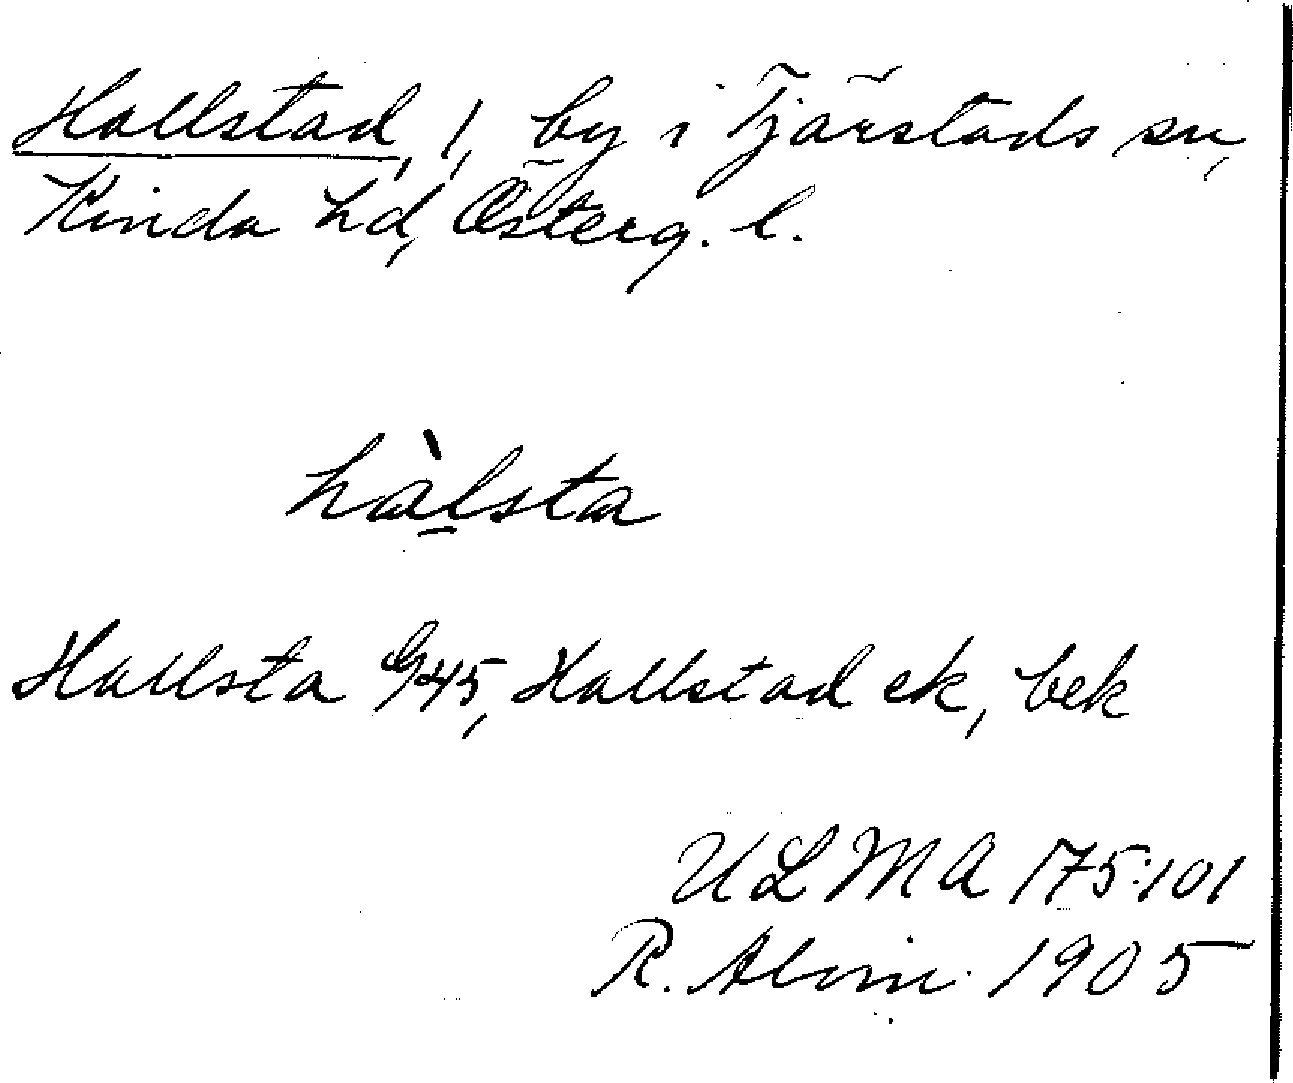 Hallstad, 1, by i Tjärstads sn,
Kinda hd, Österg. l.
hàlsta
Hallsta G45, Hallstad ek, bek
ULMA 175:101
R. Alvin 1905